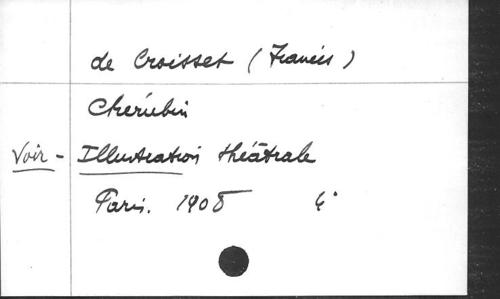 de Croisset (Francis)
Cherubin
Voir - Illustration théâtrale
Paris. 1908 4°